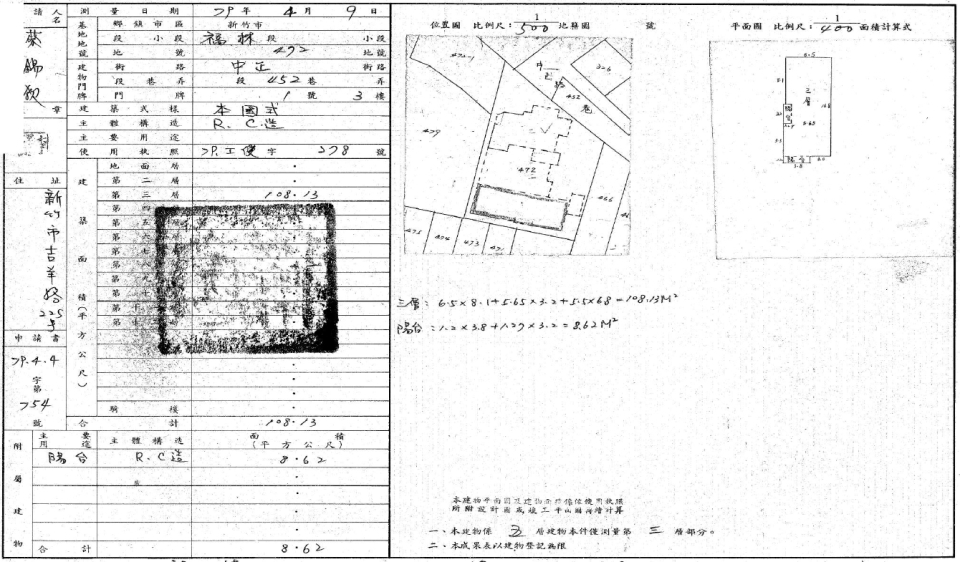 請人姓名
蔡錦
章
住址
新竹市吉羊路225號
申請書
79.4.4
字第
754
號
測量日期 79年4月9日
基地地號 鄉鎮市區 新竹市
段小段 福林段 小段
地號 492 地號
建物門牌 街路 中正 街路
段巷弄 段 452巷 弄
門牌 1號 3樓
建築式樣 本國式
主體構造 R.C造
主要用途
使用執照 79.工使字 278 號
建築面積(平方公尺)
地面層
第二層
第三層 108.13
第四
第五
第六
第七
第八
第九
第十
騎樓
合計 108.13
附屬建物
主要用途 主體構造 面積(平方公尺)
陽台 R.C造 8.62
合計 8.62
位置圖 比例尺:1/500 地籍圖 號
平面圖 比例尺:1/400 面積計算式
326
452
巷
479
472
466
475
474
473
471
三層
6.5
5.65
陽台
3.8
三層:6.5×8.1+5.65×3.2+5.5×6.8=108.13M²
陽台:1.2×3.8+1.27×3.2=8.62M²
本建物平面圖及建物位置係依使用執照
所附設計圖或竣工平面圖轉繪計算
一、本建物係 五 層建物本件僅測量第 三 層部分。
二、本成果表以建物登記為限